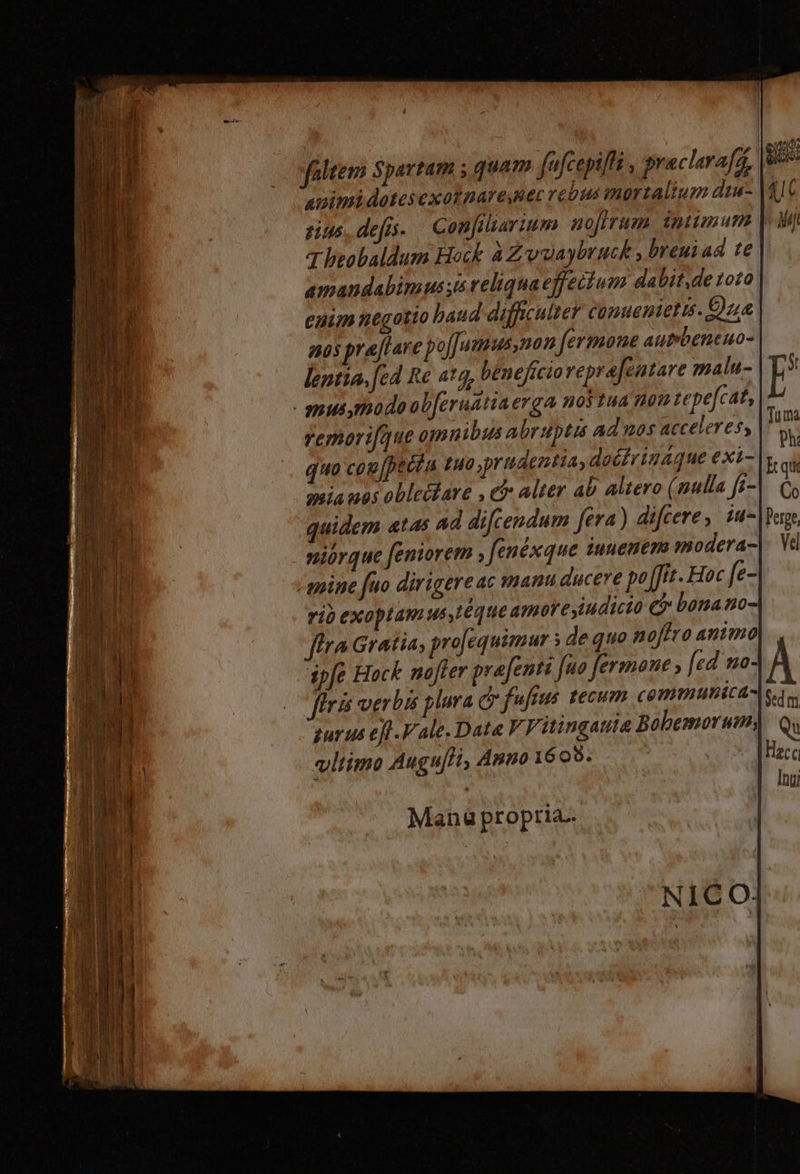 ſaltem Spartam ; quam ſuſcepiſti, præclaraſq́,
animi dotes exornare, nec rebus mortalium diu-
tius deſis. Conſiliarium noſtrum intimum
Theobaldum Hock à Zvvaybruck, breui ad te
amandabimus; is reliqua effectum dabit, de toto
enim negotio haud difficulter conuenietis. Quæ
nos præſtare poſſumus, non ſermone aut beneuo-
lentia, ſed Re atq, beneficio repræſentare malu-
mus, modo obſeruãtia erga nos tua non tepeſcat,
remoriſque omnibus abruptis ad nos acceleres,
quo conſpectu tuo, prudentia, doctrináque exi-
mia nos oblectare, & alter ab altero (nulla ſi-
quidem ætas ad diſcendum ſera) diſcere, iu-
niórque ſeniorem, ſenéxque iuuenem modera-
mine ſuo dirigere ac manu ducere poſſit. Hoc ſe-
riò exoptamus, téque amore, iudicio & bona no-
ſtra Gratia, proſequimur; de quo noſtro animo
ipſe Hock noſter præſenti ſuo ſermone, ſed no-
ſtris verbis plura & fuſius tecum communica-
turus eſt. Vale. Datæ VVitingauiæ Bohemorum,
vltimo Auguſti, Anno 1608.
Manu propria.
NICO-
E
Tuma
Et qui
Co
Perge,
Vel
A
Sed m
Qu
Hæcc